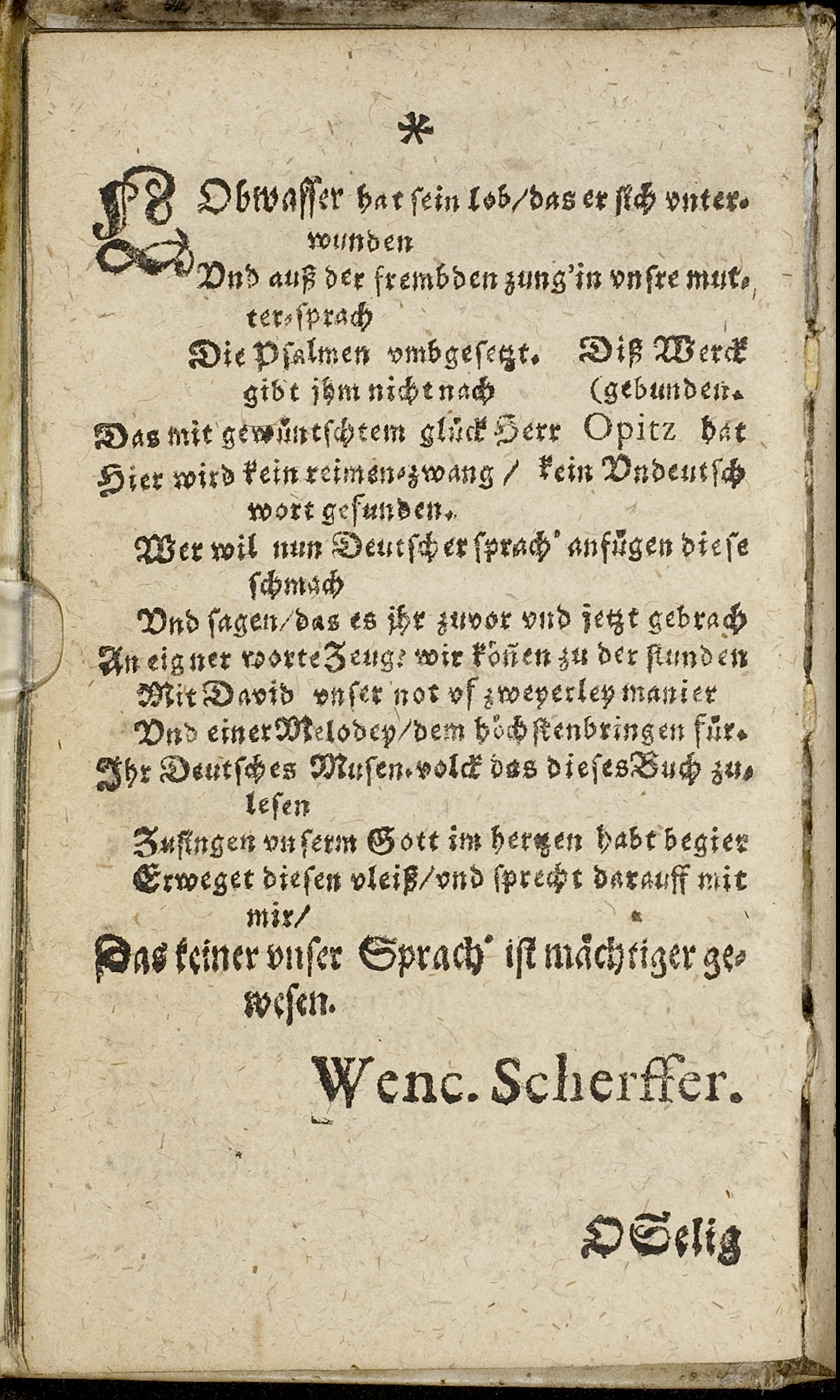 *
LObwasser hat sein lob/das er sich vnter-
wunden
Vnd auß der frembden zung'in vnsre mut-
ter-sprach
Die Psalmen vmbgesetzt. Diß Werck
gibt jhm nicht nach (gebunden.
Das mit gewüntschtem glück Herr Opitz hat
Hier wird kein reimen-zwang / kein Vndeutsch
wort gefunden.
Wer wil nun Deutscher sprach' anfügen diese
schmach
Vnd sagen/das es jhr zuvor vnd jetzt gebrach
An eigner worte Zeug: wir köñen zu der stunden
Mit David vnser not vf zweyerley manier
Vnd einer Melodey/dem höchsten bringen für.
Ihr Deutsches Musen-volck das dieses Buch zu-
lesen
Zusingen vnserm Gott im hertzen habt begier
Erweget diesen vleiß/vnd sprecht darauff mit
mir/
Das keiner vnser Sprach' ist mächtiger ge-
wesen.
Wenc. Scherffer.
O Selig